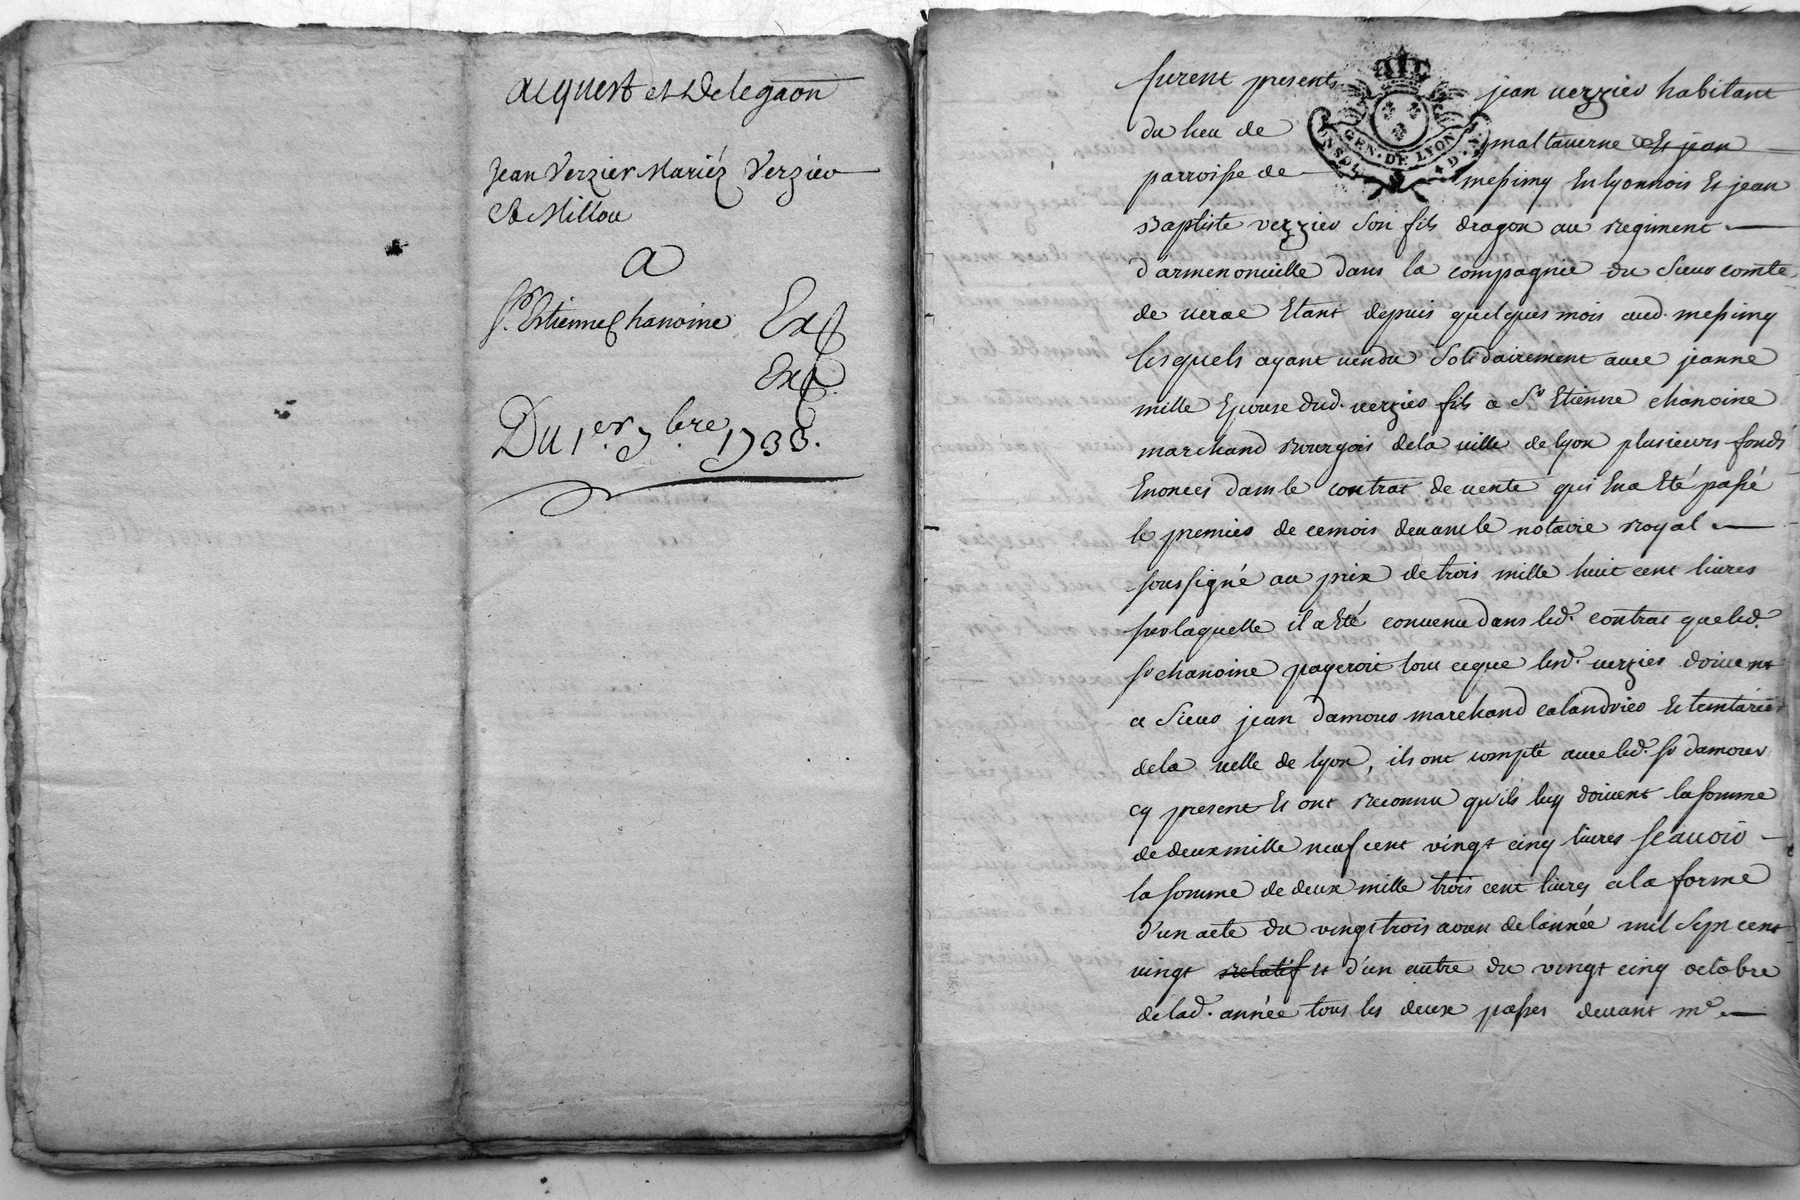 acquest et Delegaon
Jean Verzier Mariéz Verzier
Et Millou
A
Sr. Estienne Chanoine Exp
Exp
Du 1er. 7bre 1733.
furent presents jean verzier habitant
du lieu de maltaverne et jean
parroisse de messimy En lyonnois Et jean
Baptiste verzier son fils dragon au Regiment
d'armenonuille dans la compagnie du sieur comte
de uerae Etant depuis quelques mois aud. messimy
lesquels ayant vendu solidairement auec jeanne
mille Epouse dud. verzier fils a Sr Etienne chanoine
marchand Bourgois de la uille de lyon plusieurs fonds
Enoncés dans le contrat de uente qui En a Eté passé
le premier de ce mois deuant le notaire Royal
soussigné au prix de trois mille huit cent liures
sur laquelle il a Eté conuenu dans led. contrat que led.
Sr chanoine payeroit tout ce que lesd. uerzier doiuent
a Sieur jean damour marchand calandrier Et teinturier
de la uille de lyon, ils ont compté auec led. Sr damour
cy present Et ont Reconnu qu'ils luy doiuent la somme
de deux mille neuf cent vingt cinq liures scauoir
la somme de deux mille trois cent liures a la forme
d'un acte du vingt trois aoust de l'année mil sept cent
uingt relatif et d'un autre du vingt cinq octobre
de lad. année tous les deux passés deuant me
GEN. DE LYON